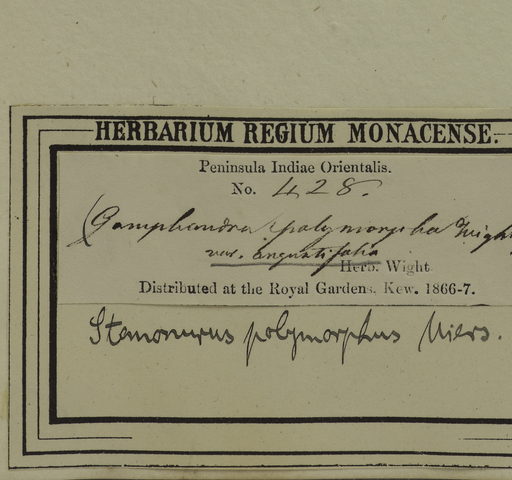 HERBARIUM REGIUM MONACENSE.
Peninsula Indiae Orientalis.
No. 428.
(Gomphandra polymorpha Wight
var. angustifolia
Herb. Wight
Distributed at the Royal Gardens, Kew. 1866-7.
Stemonurus polymorphus Miers.